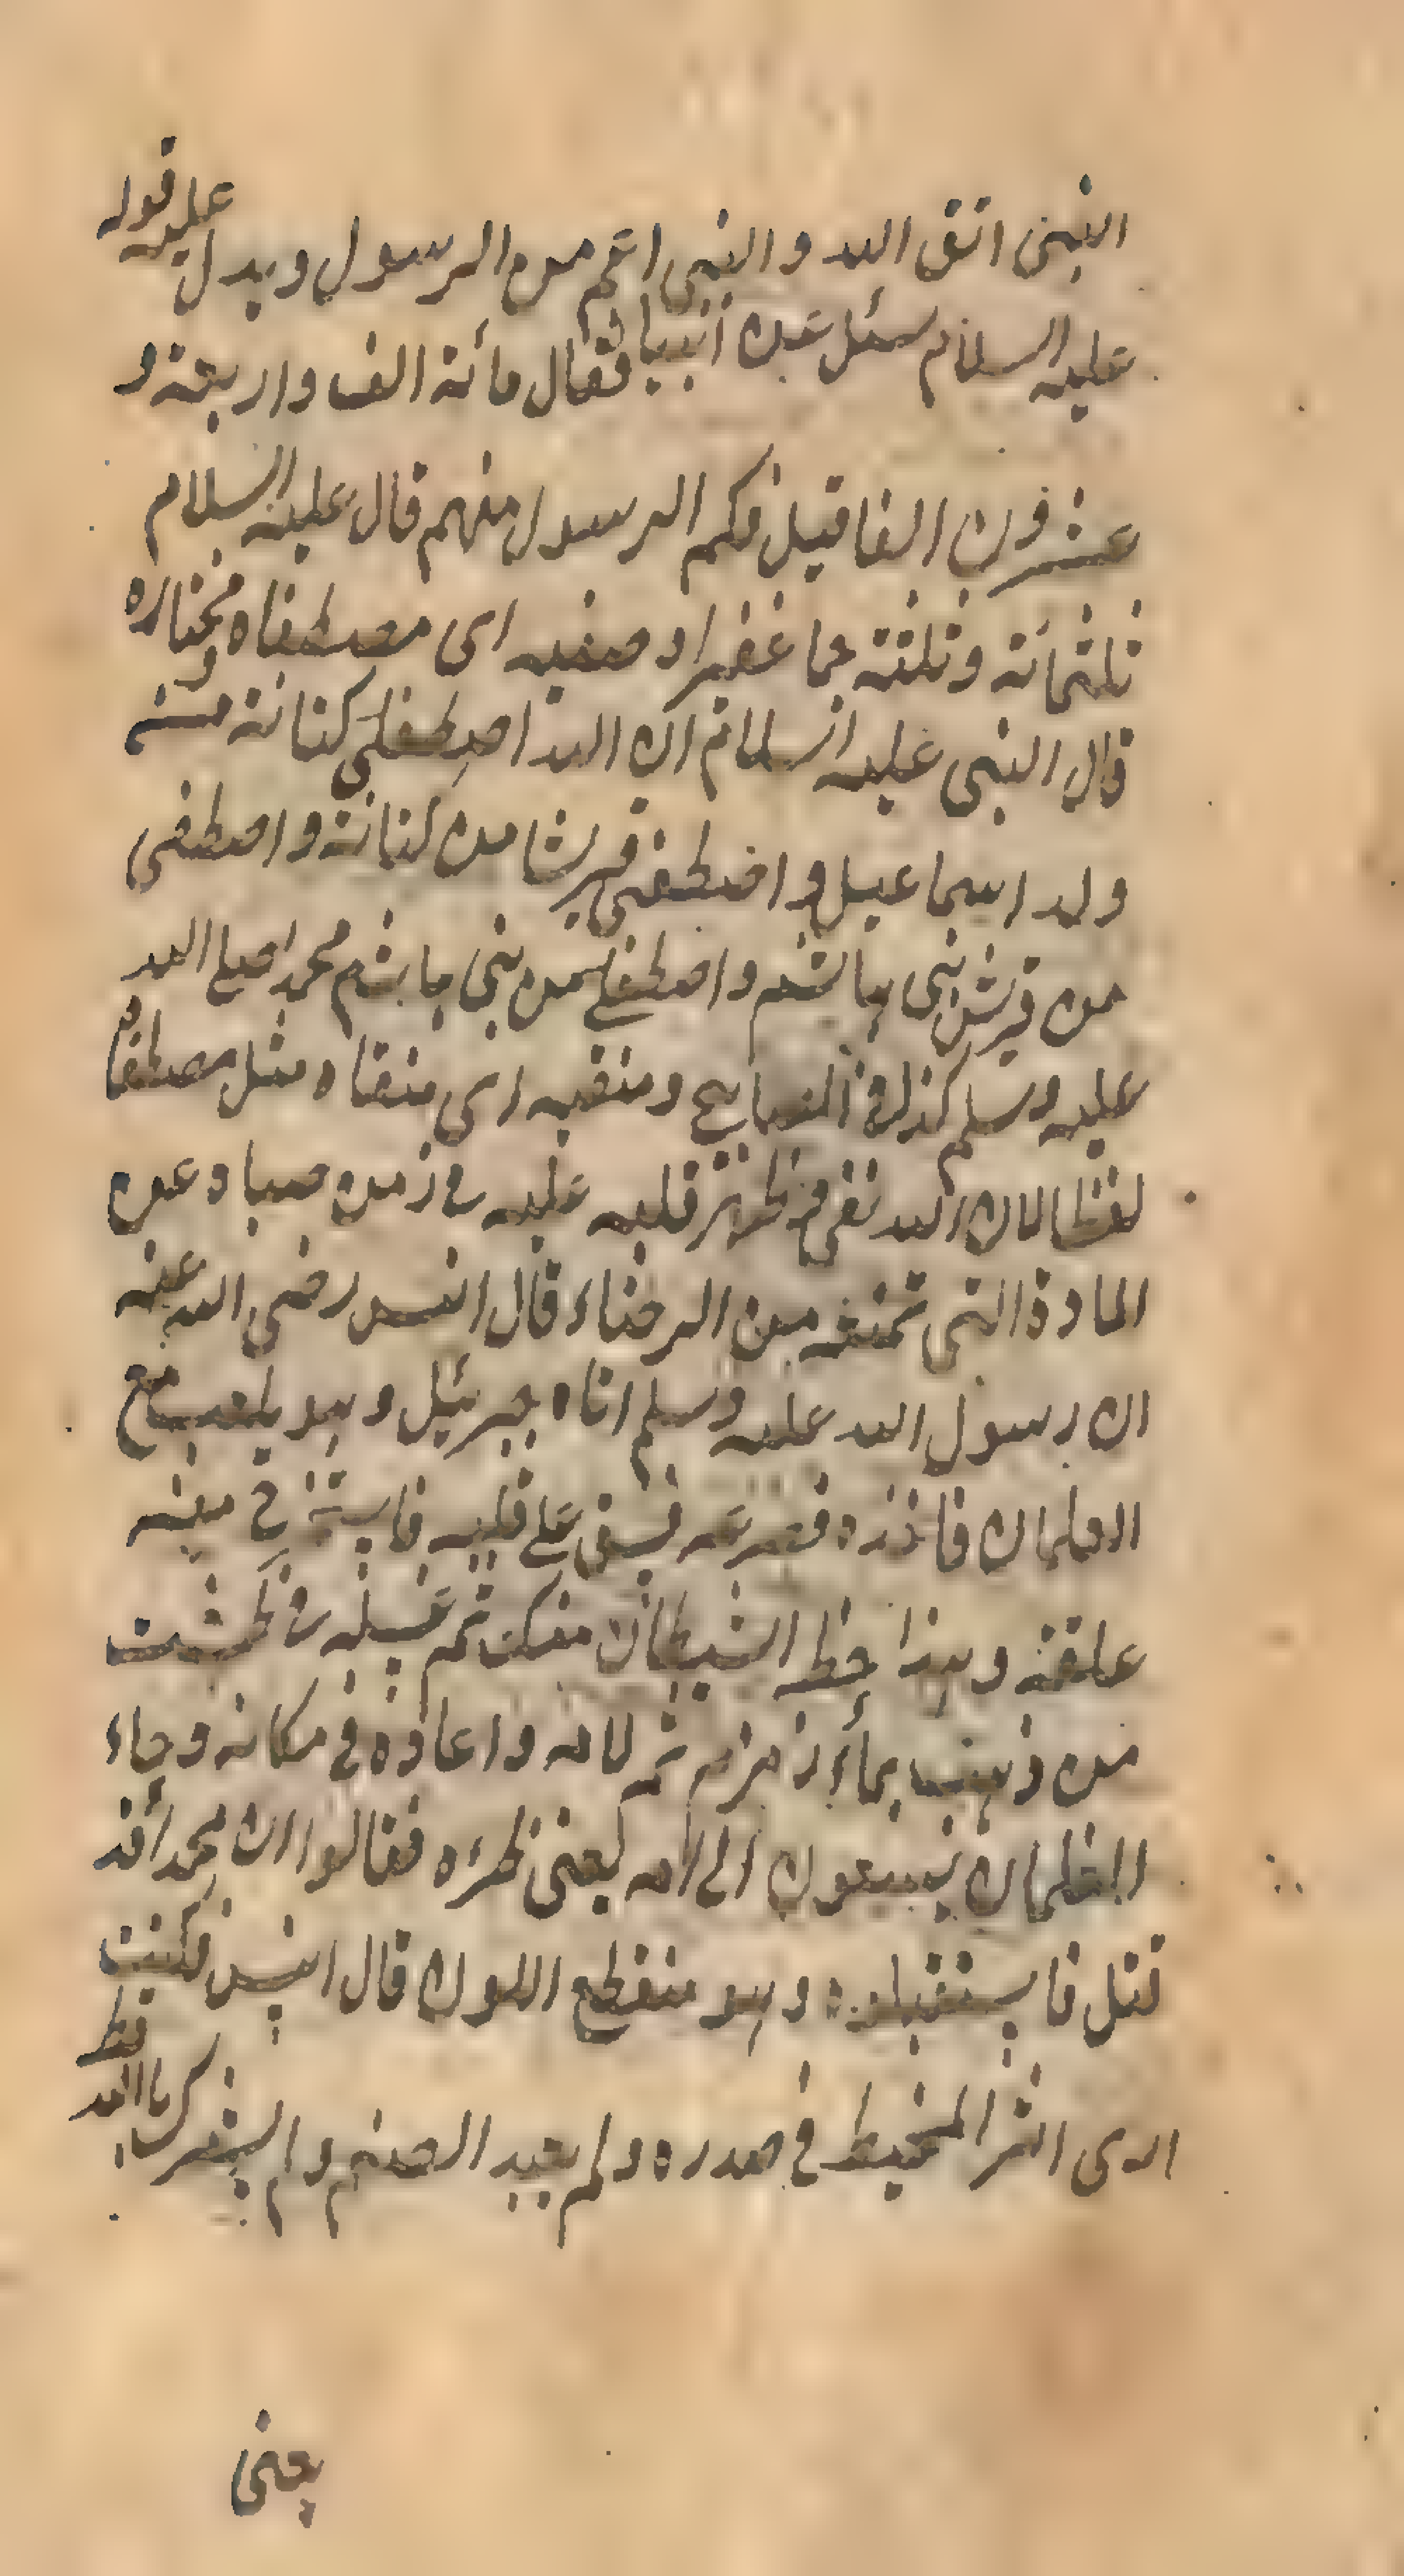 النبى اتق الله والنبى اعم من الرسول ويدل عليه قوله
عليه السلام سئل عن انبيا فقال مائة الف واربعة و
عشرون الفا قيل فكم الرسول منهم قال عليه السلام
ثلثمائة وثلثة جما غفيرا وصفيه اى مصطفاه ومختاره
قال النبى عليه السلام ان الله اصطفى كنانة من
ولد اسماعيل واصطفى قريشا من كنانة واصطفى
من قريش بنى هاشم واصطفى من بنى هاشم محمدا صلى الله
عليه وسلم كذا فى المصابيح ومنقيه اى منقاه مثل مصطفاه
لفظا لان الله نقى قلبه عليه فى زمن صباه عن
المادة التى تمنعه من قال انس رضى الله عنه
ان رسول الله عليه وسلم اتاه جبرئيل وهو يلعب مع
الغلمان فاخذه فصرعه فشق على قلبه فاستخرج منه
علقة وهذا حظ الشيطان منك ثم غسله فى طشت
من ذهب بماء زمزم ثم لامه واعاده فى مكانه وجاء
الغلمان يسعون الى امه يعنى ظئره فقالوا ان محمدا قد
قتل فاستقبلوه وهو منقطع اللون قال انس فكنت
ارى اثر المخيط فى صدره ولم يعبد الصنم ولم يشرك بالله قط
يعنى